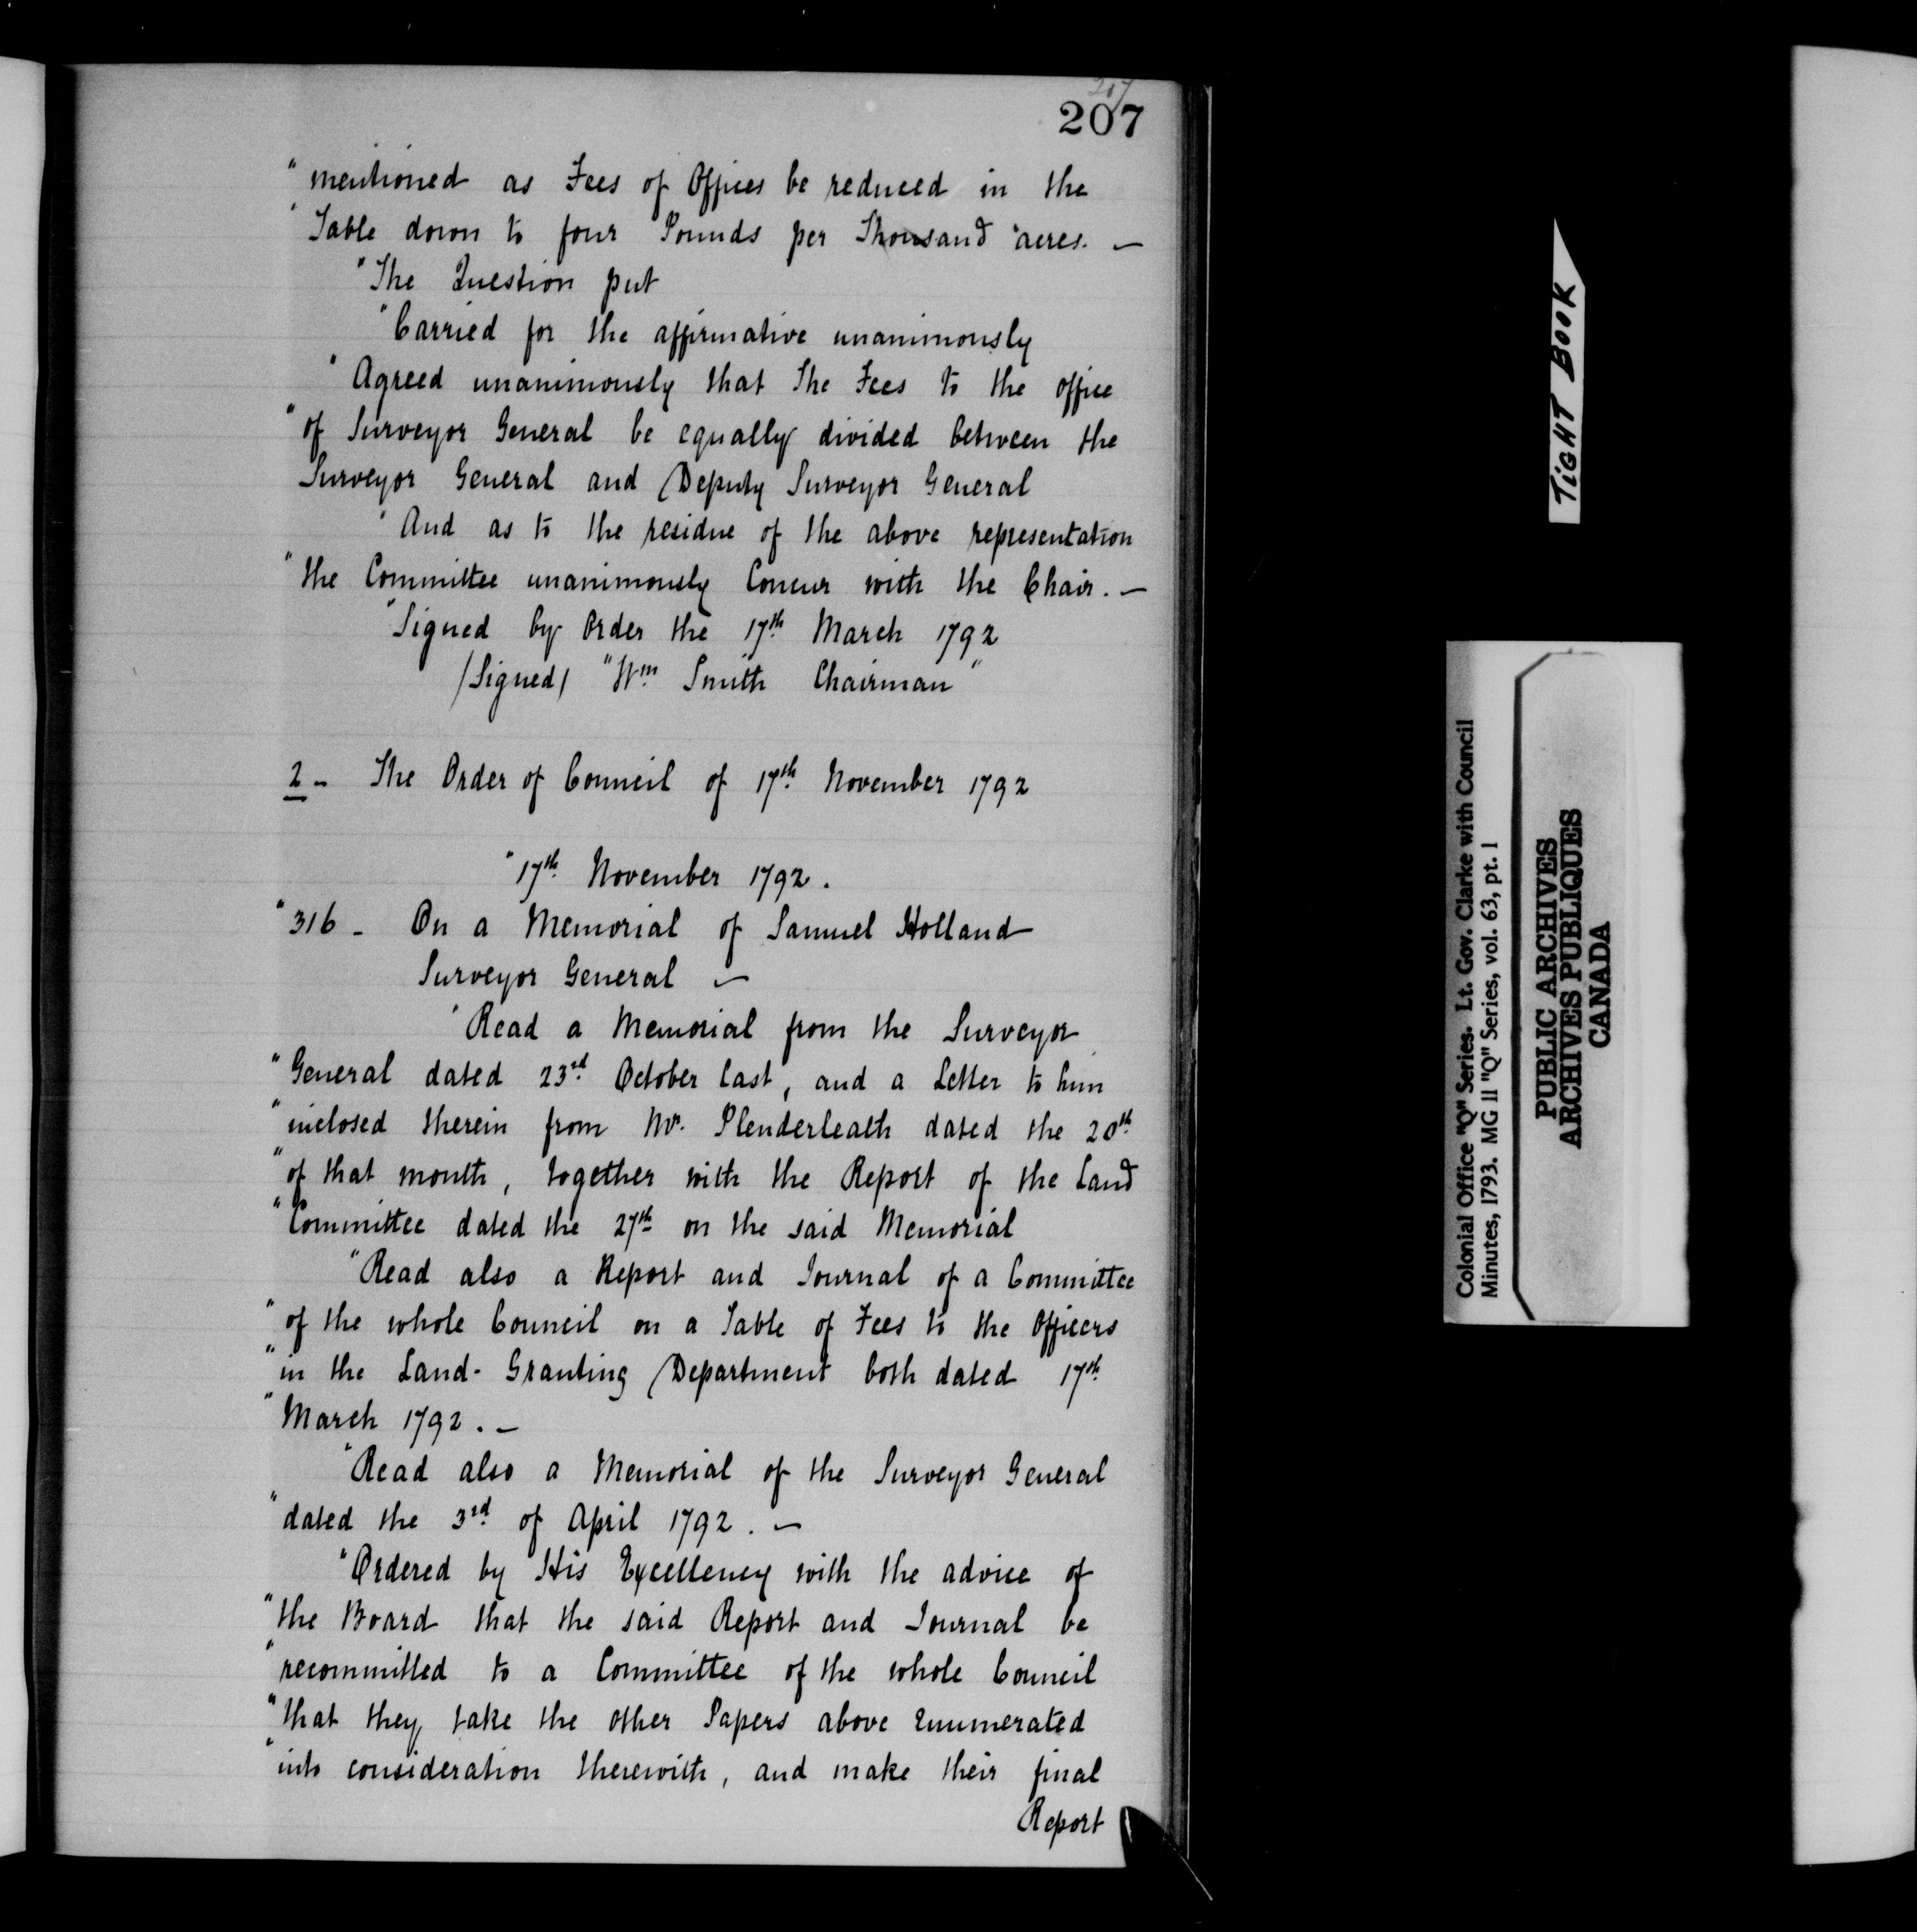 207
207
"mentioned as Fees of Offices be reduced in the
"Table down to four Pounds per Thousand acres. —
"The Question put
"Carried for the affirmative unanimously
"Agreed unanimously that The Fees to the office
"of Surveyor General be equally divided between the
Surveyor General and Deputy Surveyor General
"And as to the residue of the above representation
"the Committee unanimously Concur with the Chair. —
"Signed by Order the 17th March 1792
/Signed/ "Wm Smith Chairman"
2 - The Order of Council of 17th November 1792
"17th November 1792.
"316 - On a Memorial of Samuel Holland
Surveyor General —
"Read a Memorial from the Surveyor
"General dated 23rd October last, and a Letter to him
"inclosed therein from Mr. Plenderleath dated the 20th
"of that month, together with the Report of the Land
"Committee dated the 27th on the said Memorial
"Read also a Report and Journal of a Committee
"of the whole Council on a Table of Fees to the Officers
"in the Land-Granting Department both dated 17th
"March 1792. —
"Read also a Memorial of the Surveyor General
"dated the 3rd of April 1792. —
"Ordered by His Excellency with the advice of
"the Board that the said Report and Journal be
"recommitted to a Committee of the whole Council
"that they take the other Papers above Enumerated
"into consideration therewith, and make their final
Report
TIGHT BOOK
Colonial Office "Q" Series. Lt. Gov. Clarke with Council
Minutes, 1793. MG 11 "Q" Series, vol. 63, pt. 1
PUBLIC ARCHIVES
ARCHIVES PUBLIQUES
CANADA